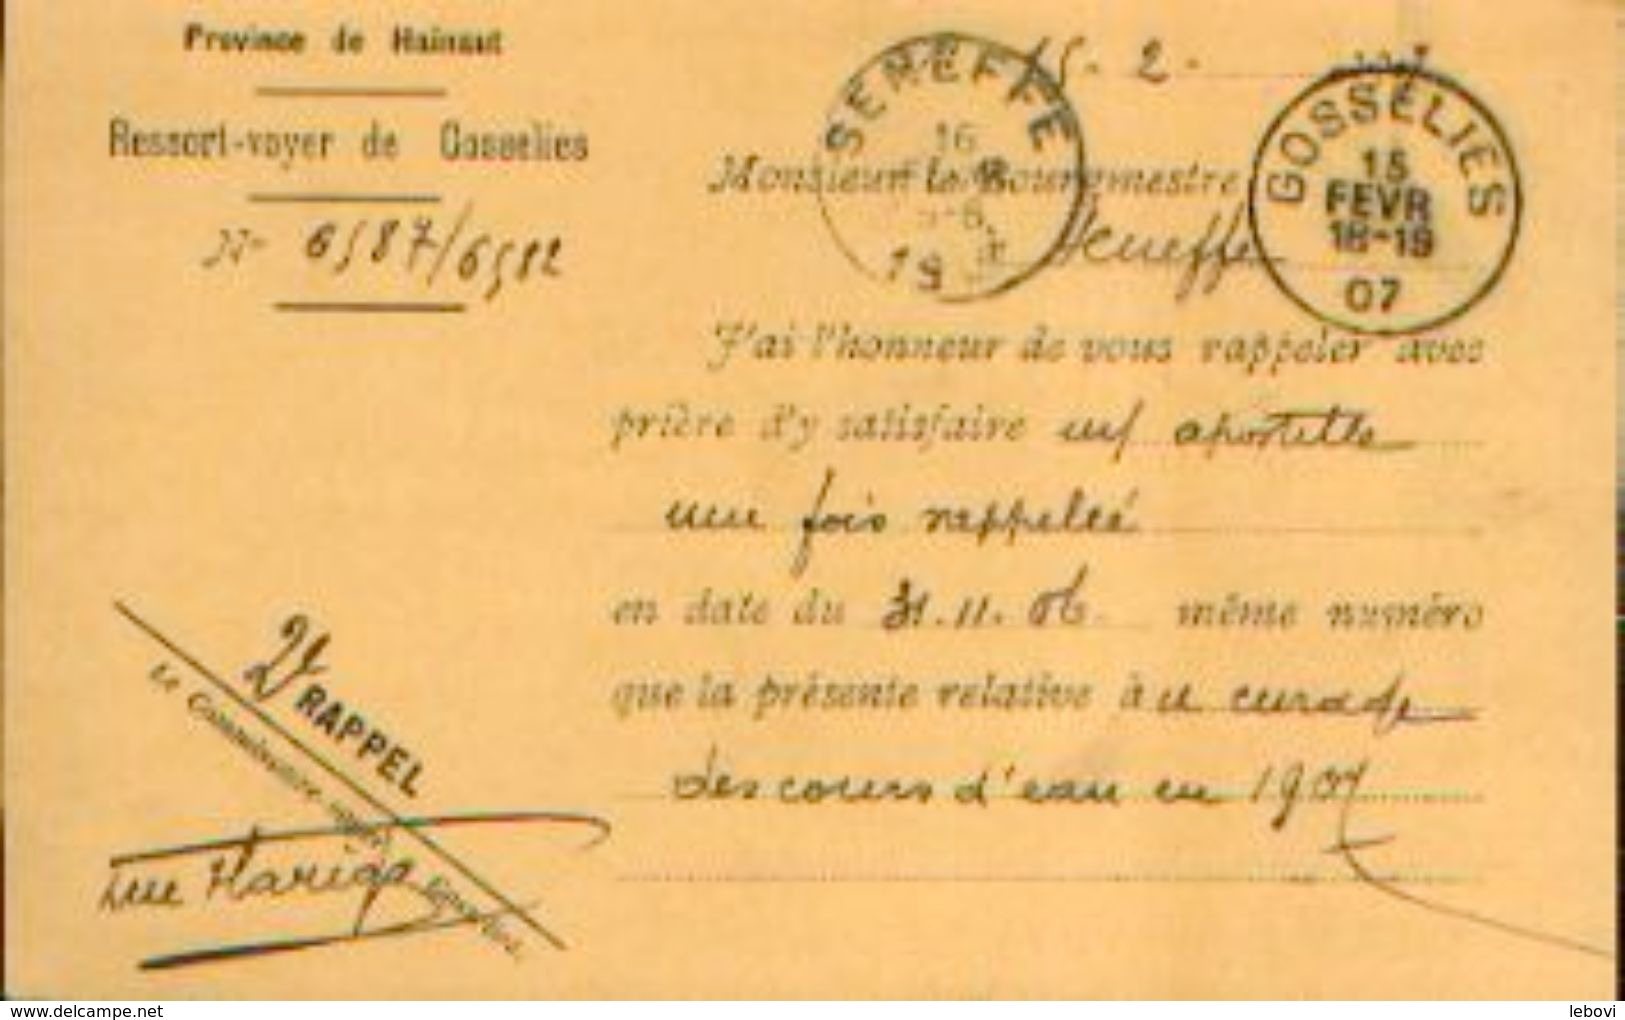 Province de Hainaut
Ressort-voyer de Gosselies
N° 6587/6582
15-2-
SENEFFE
16
19
GOSSELIES
15
FEVR
18-19
07
Monsieur le Bourgmestre
Seneffe
J'ai l'honneur de vous rappeler avec
prière d'y satisfaire mes apostille
une fois rappelée
en date du 31.11.06. même numéro
que la présente relative à u curage
des cours d'eau en 1907
2e RAPPEL
Le Commissaire voyer
lebovi